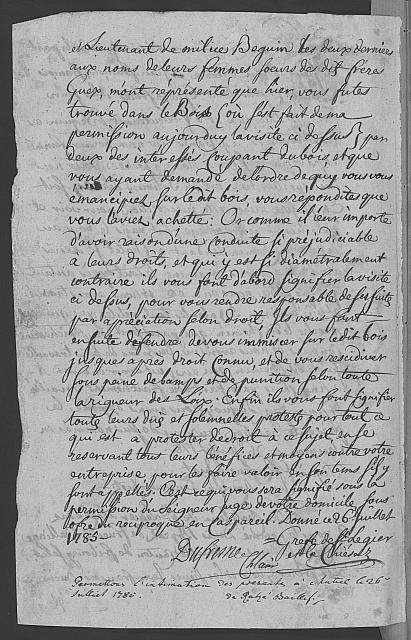 et Lieutenant de milice Beguin les deux dernieres
aux noms de leurs femmes soeurs des dits frères
Guex, mont représenté que hier, vous futes
trouvé dans le Bois (ou s'est fait de ma
permission aujourduy la visite ci dessus) par
deux des interessés coupant du bois, et que
vous ayant demandé de l'ordre de quy vous vous
émancipiez sur le dit bois, vous répondites que
vous l'aviez achetté. Or comme il leur importe
d'avoir raison d'une conduite si préjudiciable
à leurs droits, et qui y est si diamétralement
contraire ils vous font d'abord signifier la visite
ci dessus, pour vous rendre responsable de ses suite
par apréciation selon droit, Ils vous font
ensuite défendre de vous immiscer sur le dit bois
jusques après droit connu, et de vous residiver
sous peine de bamps et de punition selon toute
la rigueur des Loix. Enfin ils vous font signifier
toute leurs düe et solennelles proteste pour tout ce
qui est a protester de droit à ce sujet, en se
reservant tous leurs bénéfices et moyens contre votre
entreprise pour les faire valoir en son tems s'il y
sont appellés. C'est ce qui vous sera signifié sous la
permission du Seigneur juge de votre domicile sous
offre du réciproque en cas pareil. Donné ce 26e juillet
1785.
Greffe de St Legier
et la Chiesaz
Permettons l'intimation des presentes à
Juillet 1785.
Baillif